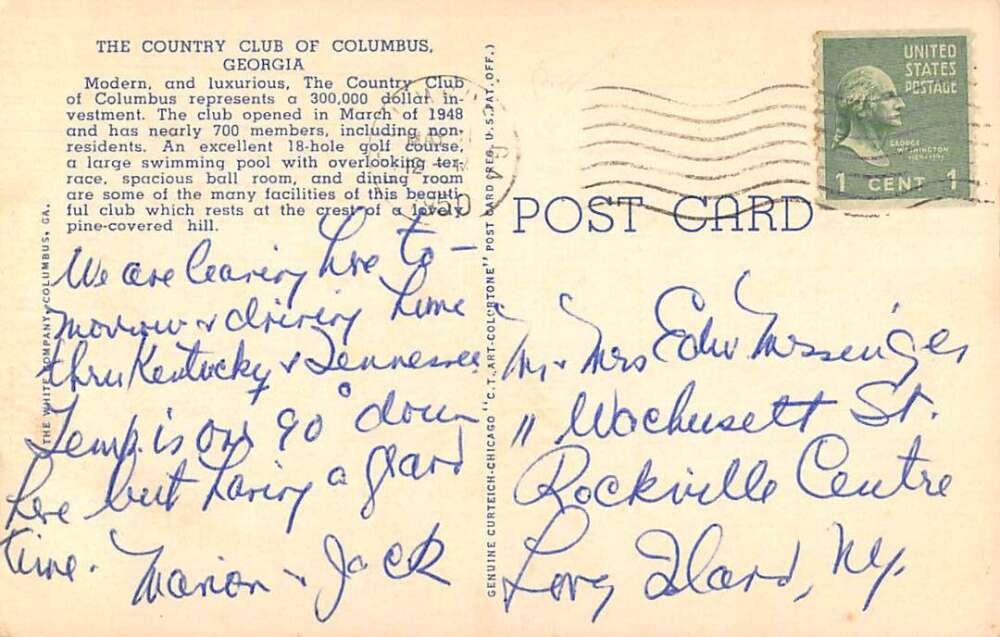 THE COUNTRY CLUB OF COLUMBUS,
GEORGIA
Modern, and luxurious, The Country Club
of Columbus represents a 300,000 dollar in-
vestment. The club opened in March of 1948
and has nearly 700 members, including non-
residents. An excellent 18-hole golf course,
a large swimming pool with overlooking ter-
race, spacious ball room, and dining room
are some of the many facilities of this beauti-
ful club which rests at the crest of a lovely
pine-covered hill.
We are leaving here to-
morrow & driving home
thru Kentucky & Tennessee
Temp. is over 90° down
here but having a grand
time. Marion & Jack
THE WHITE COMPANY, COLUMBUS, GA.
GENUINE CURTEICH-CHICAGO "C.T. ART-COLORTONE" POST CARD (REG. U.S. PAT. OFF.)
MAY
1950
UNITED
STATES
POSTAGE
GEORGE
WASHINGTON
1 CENT 1
POST CARD
Mr & Mrs Edw Messenger
11 Wachusett St.
Rockville Centre
Long Island, N.Y.